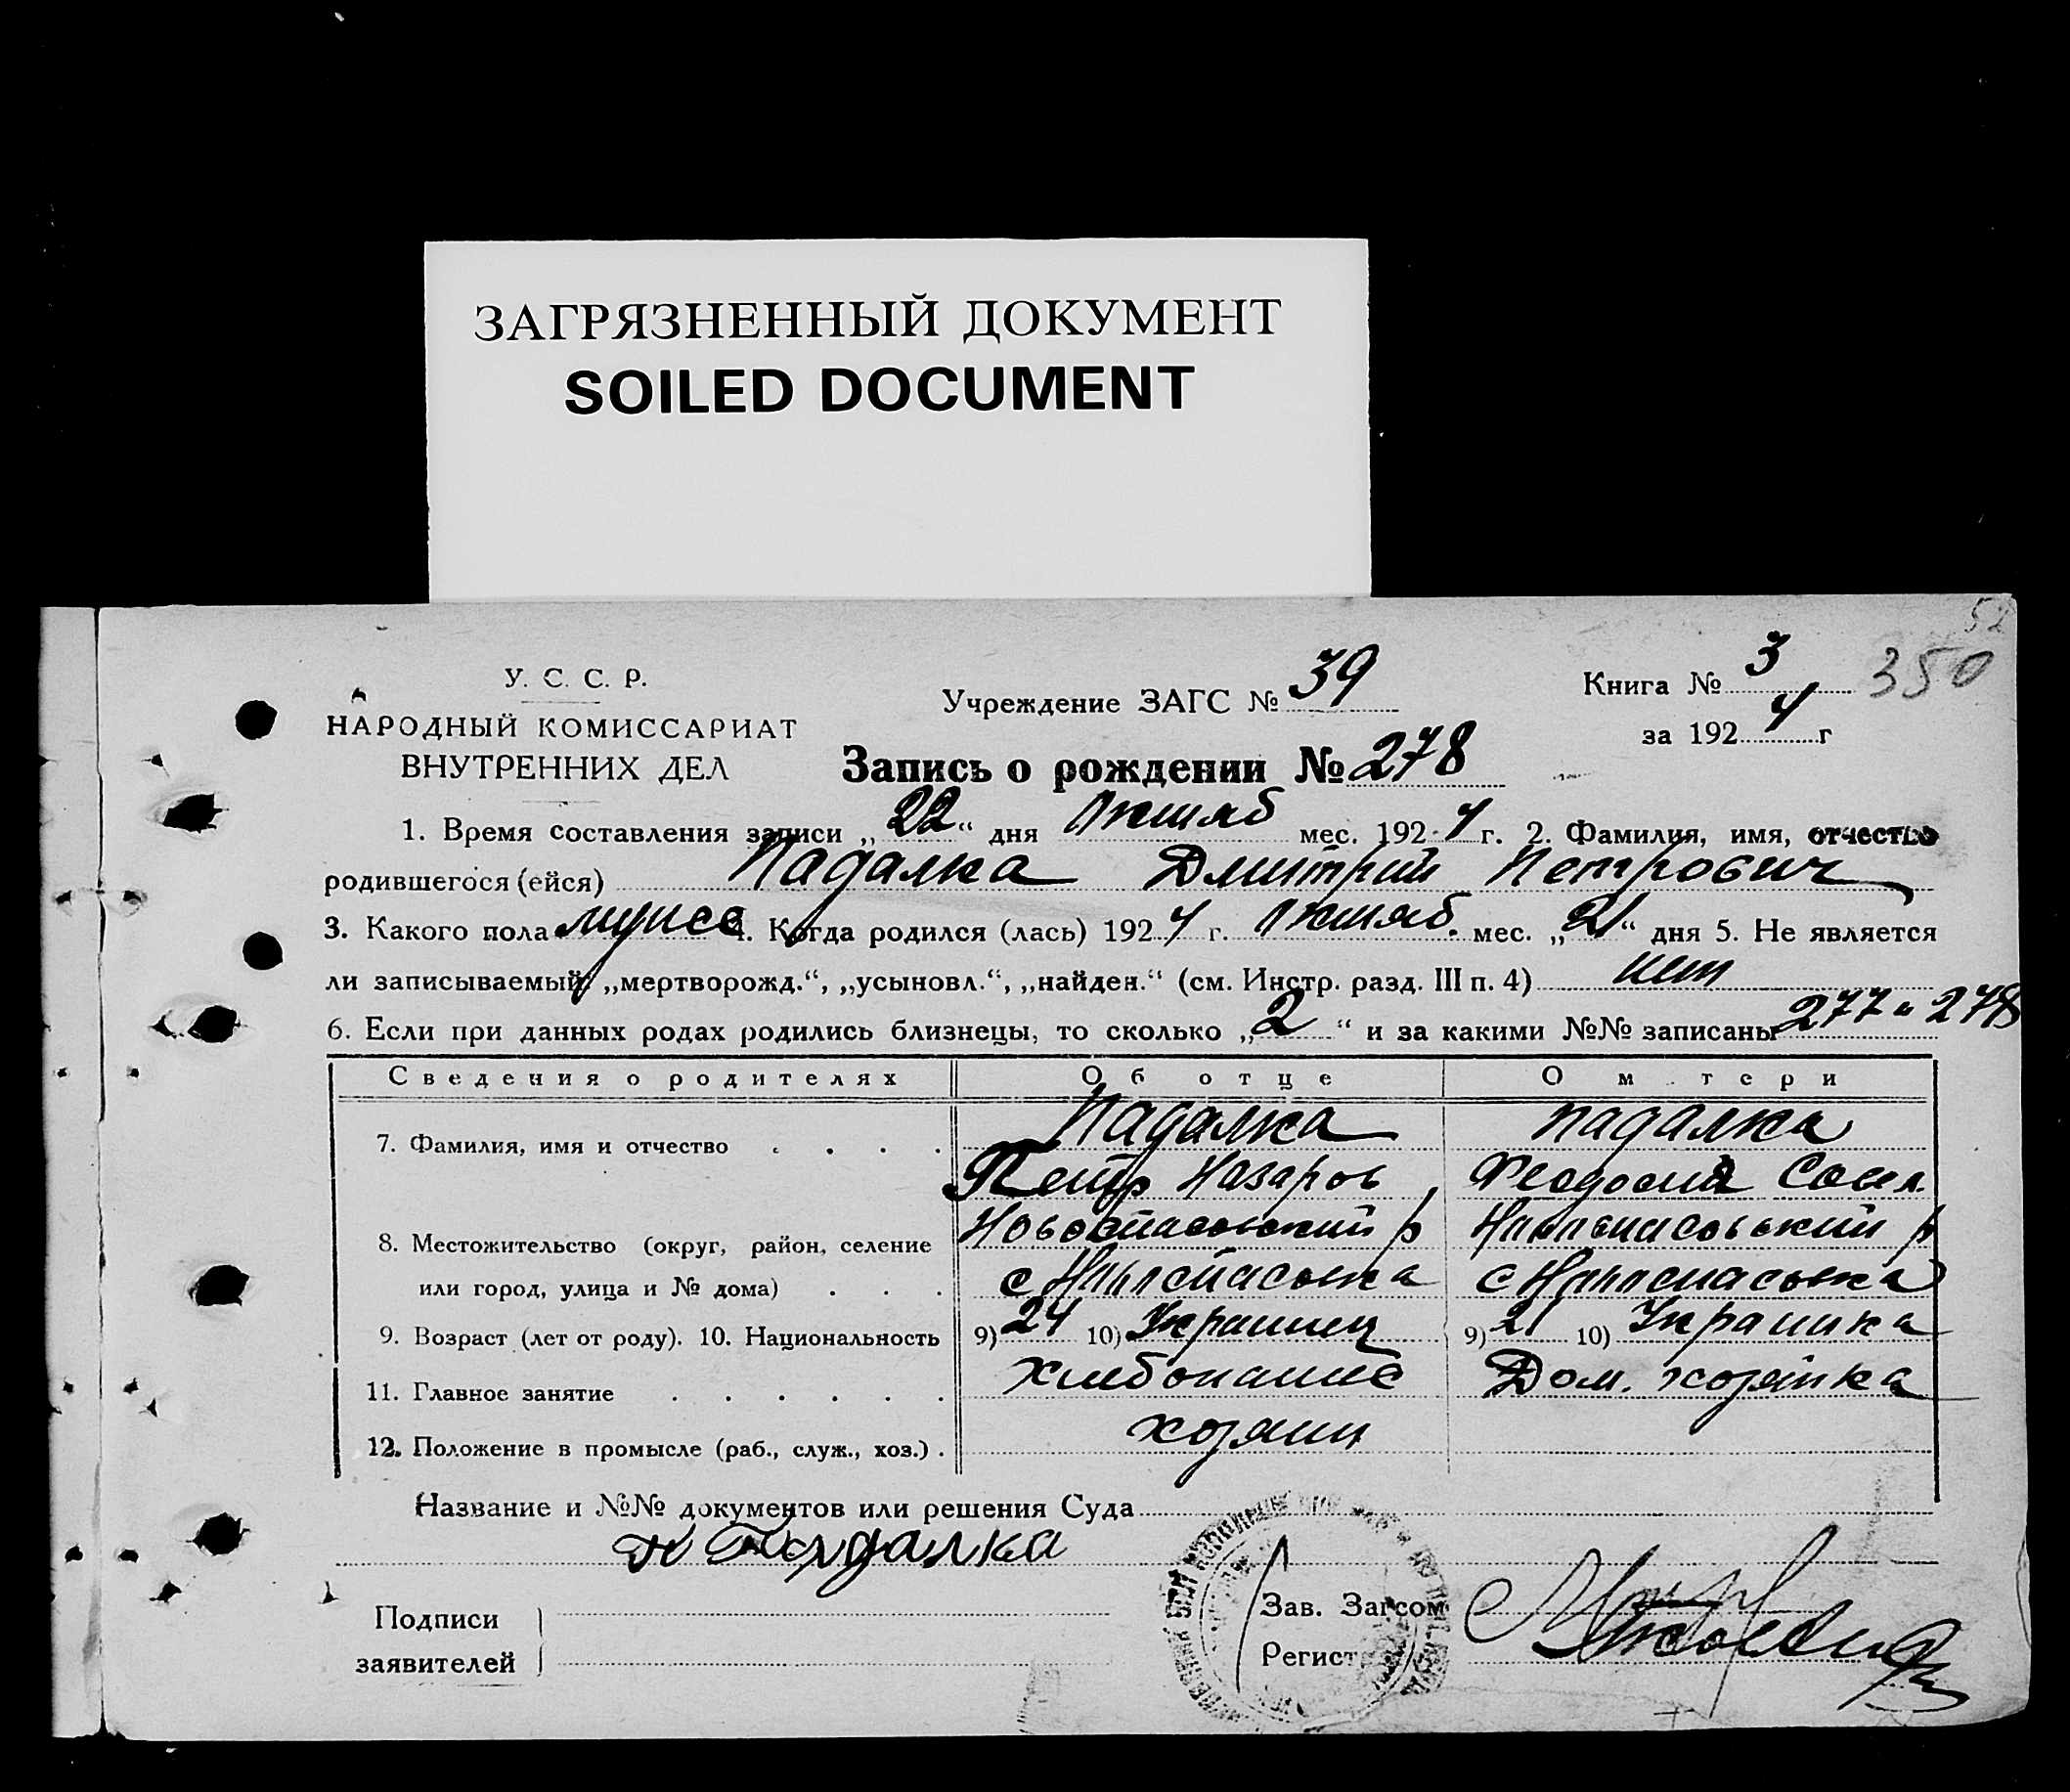 ЗАГРЯЗНЕННЫЙ ДОКУМЕНТ
SOILED DOCUMENT
52
350
У. С. С. Р.
НАРОДНЫЙ КОМИССАРИАТ
ВНУТРЕННИХ ДЕЛ
Учреждение ЗАГС № 39
Книга № 3
за 1924 г
Запись о рождении № 278
1. Время составления записи „22“ дня Октяб мес. 1924 г. 2. Фамилия, имя, отчество
родившегося (ейся) Падалка Дмитрий Петрович
3. Какого пола мужск 4. Когда родился (лась) 1924 г. Октяб. мес. „21“ дня 5. Не является
ли записываемый „мертворожд.“, „усыновл.“, „найден.“ (см. Инстр. разд. III п. 4) нет
6. Если при данных родах родились близнецы, то сколько „2“ и за какими №№ записаны 277 и 278
Сведения о родителях Об отце О м тери
7. Фамилия, имя и отчество Падалка Падалка
Петр Назаров Феодосия
8. Местожительство (округ, район, селение Новоспасовский р Новоспасовский р
или город, улица и № дома) с Новоспасовка с Новоспасовка
9. Возраст (лет от роду). 10. Национальность 9) 24 10) Украинец 9) 21 10) Украинка
11. Главное занятие хлебопашес Дом. хозяйка
12. Положение в промысле (раб., служ., хоз.) хозяин
Название и №№ документов или решения Суда
П Падалка
Подписи
заявителей
Зав. Загсом
Регист